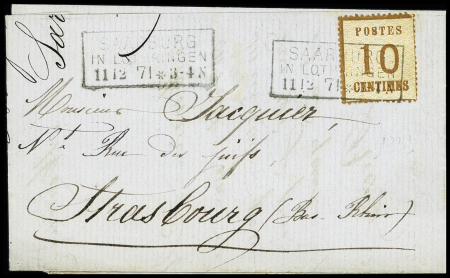 Sar
SAARBURG
IN LOTHRINGEN
11 12 71 * 3-4 N
SAARBURG
IN LOTHRINGEN
11 12 71 *
POSTES
10
CENTIMES
Monsieur Jacquier,
Nt Rue des juifs,
Strasbourg (Bas Rhin)